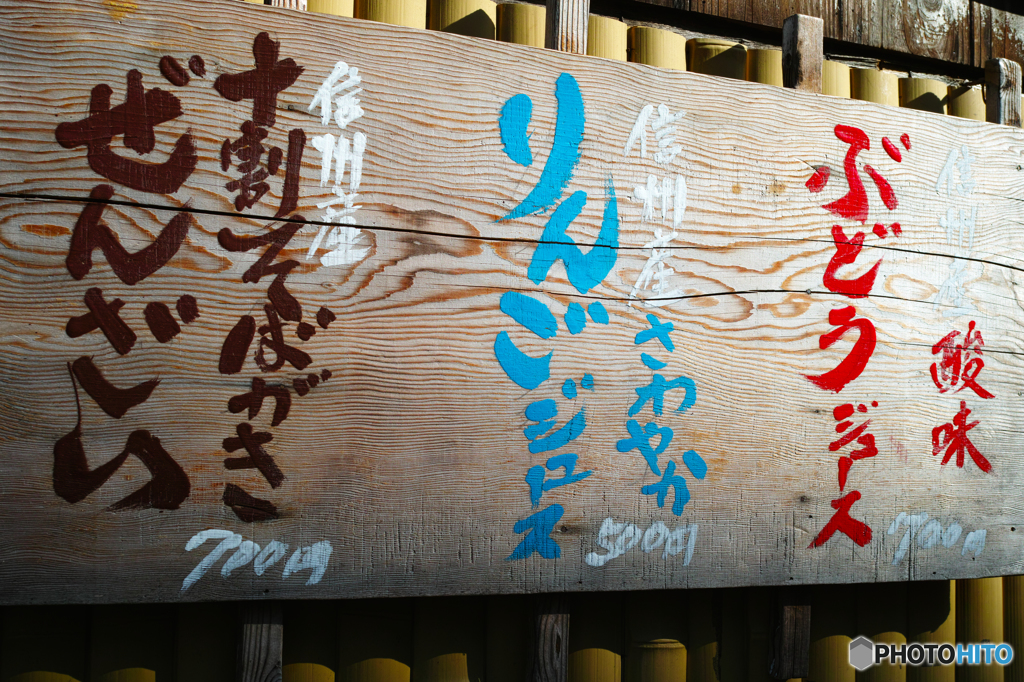 信州産
酸味
ぶどう
ジュース
700円
信州産
さわやか
りんご
ジュース
500円
信州産
十割そばがき
ぜんざい
700円
PHOTOHITO